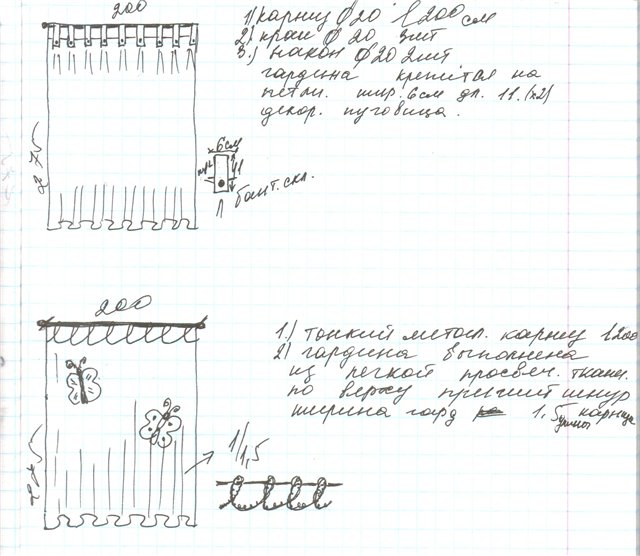 200
1) карниз ф 20 l 200 см
2) крон ф 20 3шт
3.) након ф 20 2шт
гардина крепится на
петли. шир. 6см дл. 11. (х2)
декор. пуговица.
x 6см
11
бант. скл.
200
1) тонкий метал. карниз l 200
2) гардина выполнена
из легкой просвеч. ткани.
по верху пришит шнур
ширина гард 1,5 карниза
1/1,5